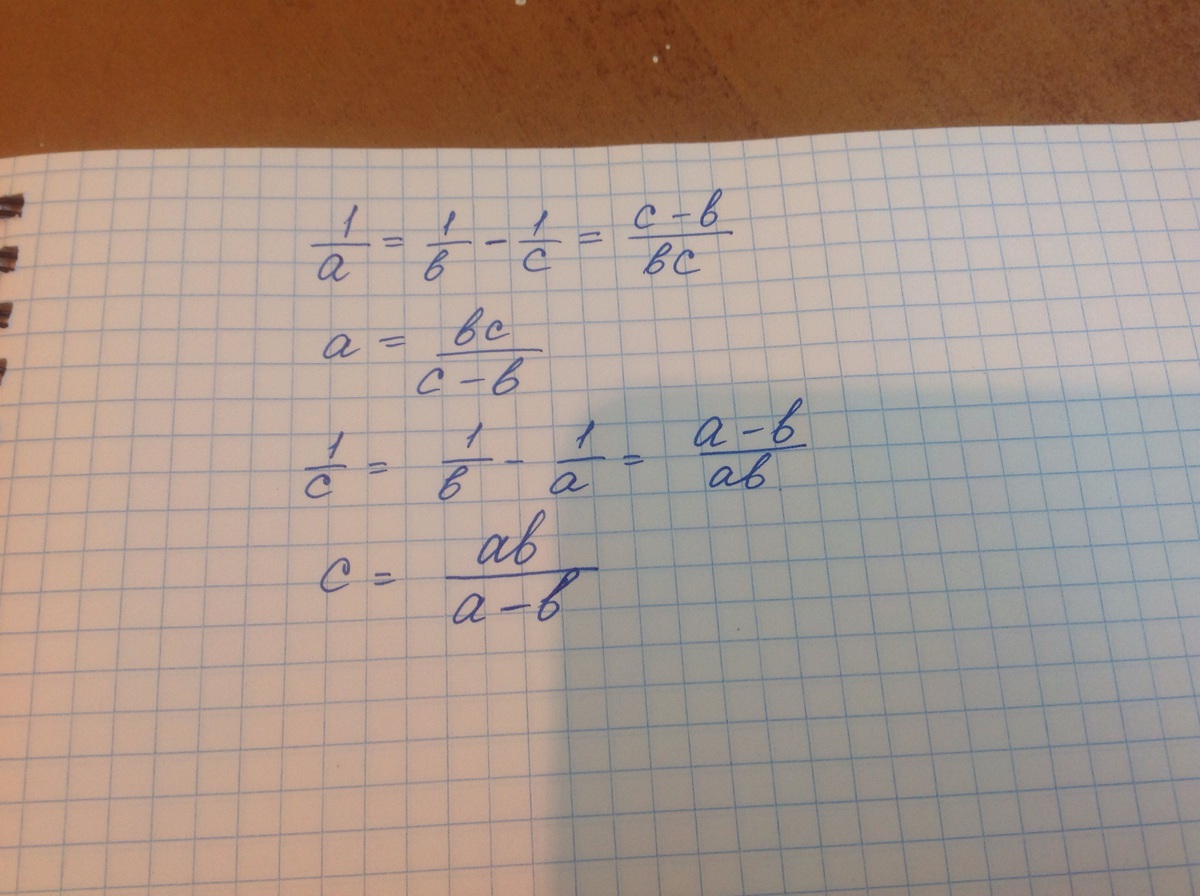 1/a = 1/b - 1/c = (c - b)/(bc)
a = bc/(c - b)
1/c = 1/b - 1/a = (a - b)/(ab)
c = ab/(a - b)